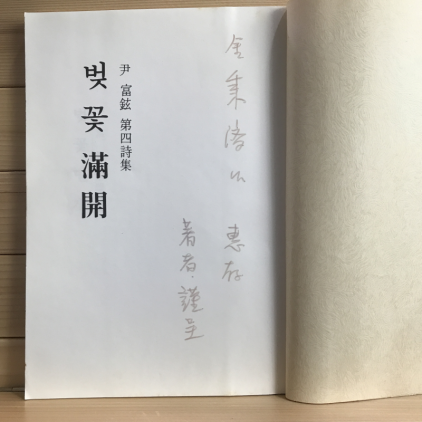 金秉 惠存
著者·謹呈
尹 富鉉 第四詩集
벚꽃 滿開